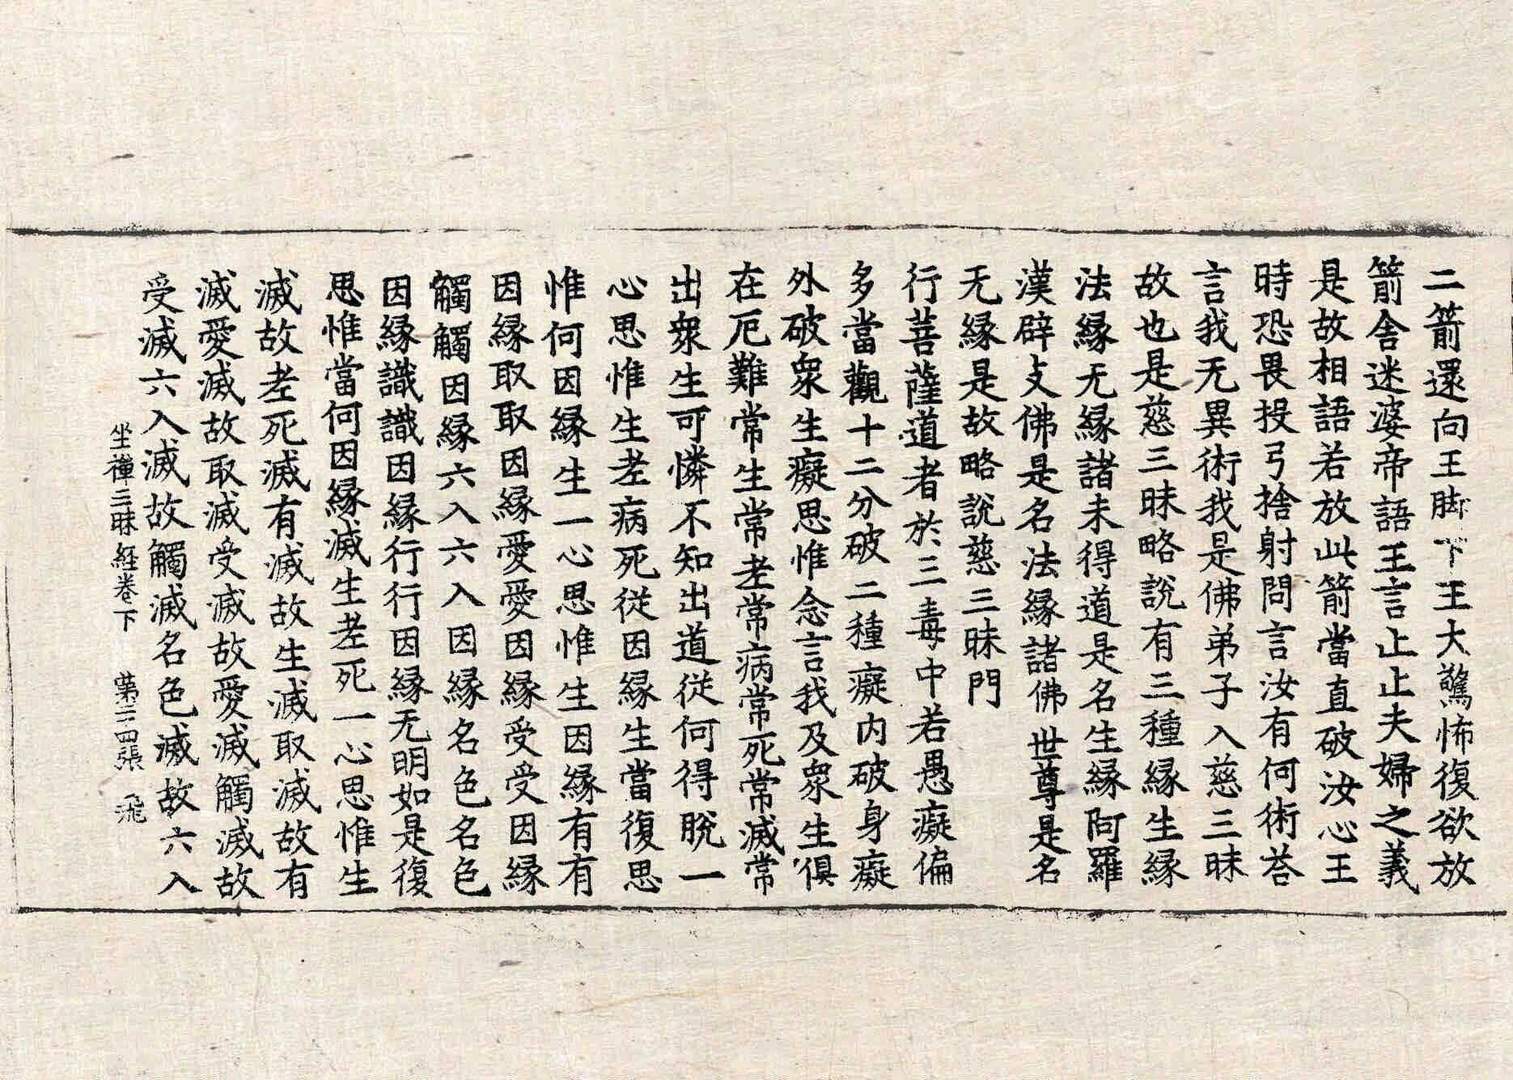 二箭還向王脚下王大驚怖復欲放
箭舍迷婆帝語王言止止夫婦之義
是故相語若放此箭當直破汝心王
時恐畏投弓捨射問言汝有何術荅
言我无異術我是佛弟子入慈三昧
故也是慈三昧略說有三種緣生緣
法緣无緣諸未得道是名生緣阿羅
漢辟支佛是名法緣諸佛世尊是名
无緣是故略說慈三昧門
行菩薩道者於三毒中若愚癡偏
多當觀十二分破二種癡內破身癡
外破衆生癡思惟念言我及衆生俱
在厄難常生常老常病常死常滅常
出衆生可憐不知出道從何得脫一
心思惟生老病死從因緣生當復思
惟何因緣生一心思惟生因緣有有
因緣取取因緣愛愛因緣受受因緣
觸觸因緣六入六入因緣名色名色
因緣識識因緣行行因緣无明如是復
思惟當何因緣滅生老死一心思惟生
滅故老死滅有滅故生滅取滅故有
滅愛滅故取滅受滅故愛滅觸滅故
受滅六入滅故觸滅名色滅故六入
坐禪三昧經卷下 第三四張 飛